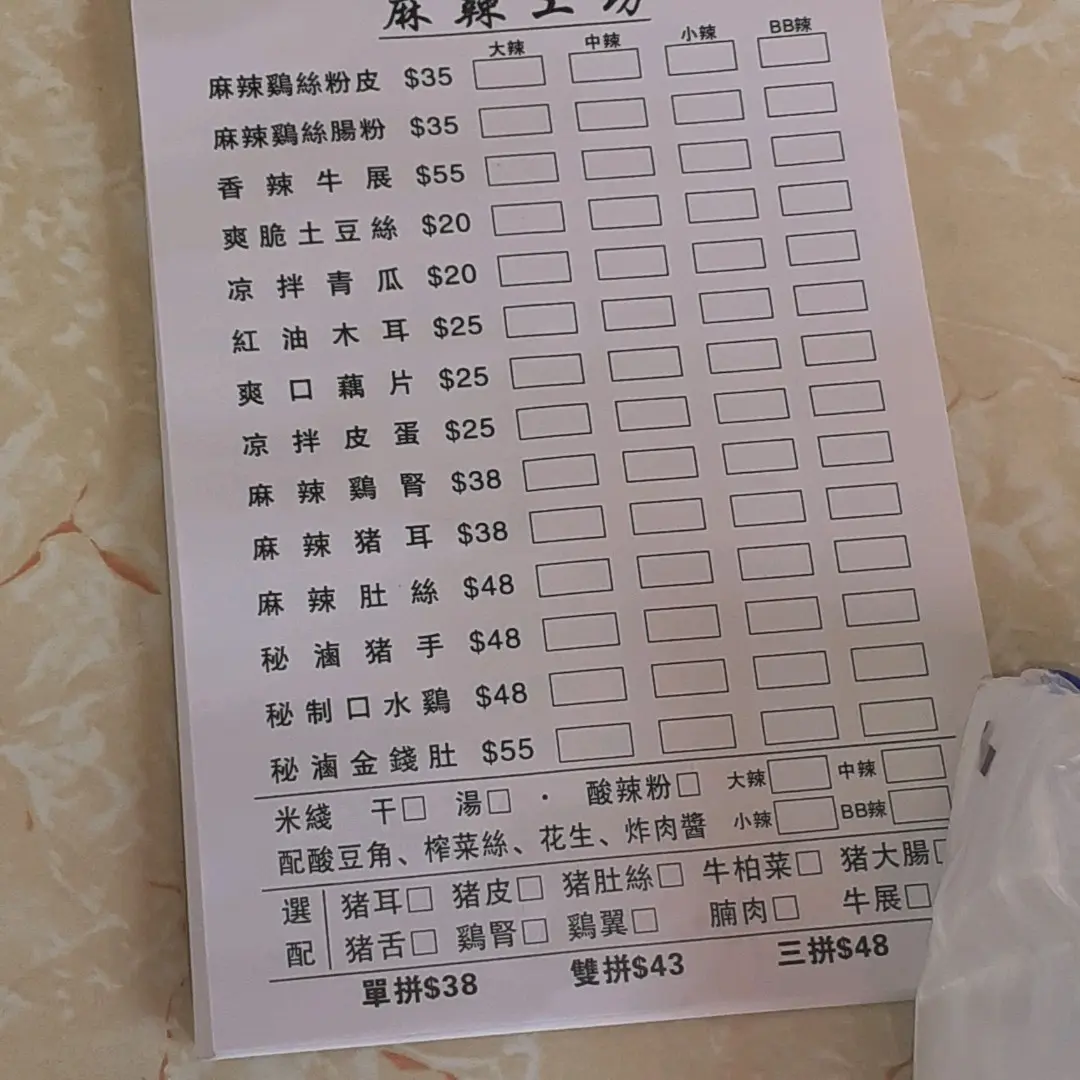 麻辣工坊
大辣 中辣 小辣 BB辣
麻辣鷄絲粉皮 $35
麻辣鷄絲腸粉 $35
香辣牛展 $55
爽脆土豆絲 $20
凉拌青瓜 $20
紅油木耳 $25
爽口藕片 $25
凉拌皮蛋 $25
麻辣鷄腎 $38
麻辣猪耳 $38
麻辣肚絲 $48
秘滷猪手 $48
秘制口水鷄 $48
秘滷金錢肚 $55
米綫 干□ 湯□ · 酸辣粉□ 大辣 中辣
配酸豆角、榨菜絲、花生、炸肉醬 小辣 BB辣
選配 猪耳□ 猪皮□ 猪肚絲□ 牛柏菜□ 猪大腸□
猪舌□ 鷄腎□ 鷄翼□ 腩肉□ 牛展□
單拼$38 雙拼$43 三拼$48